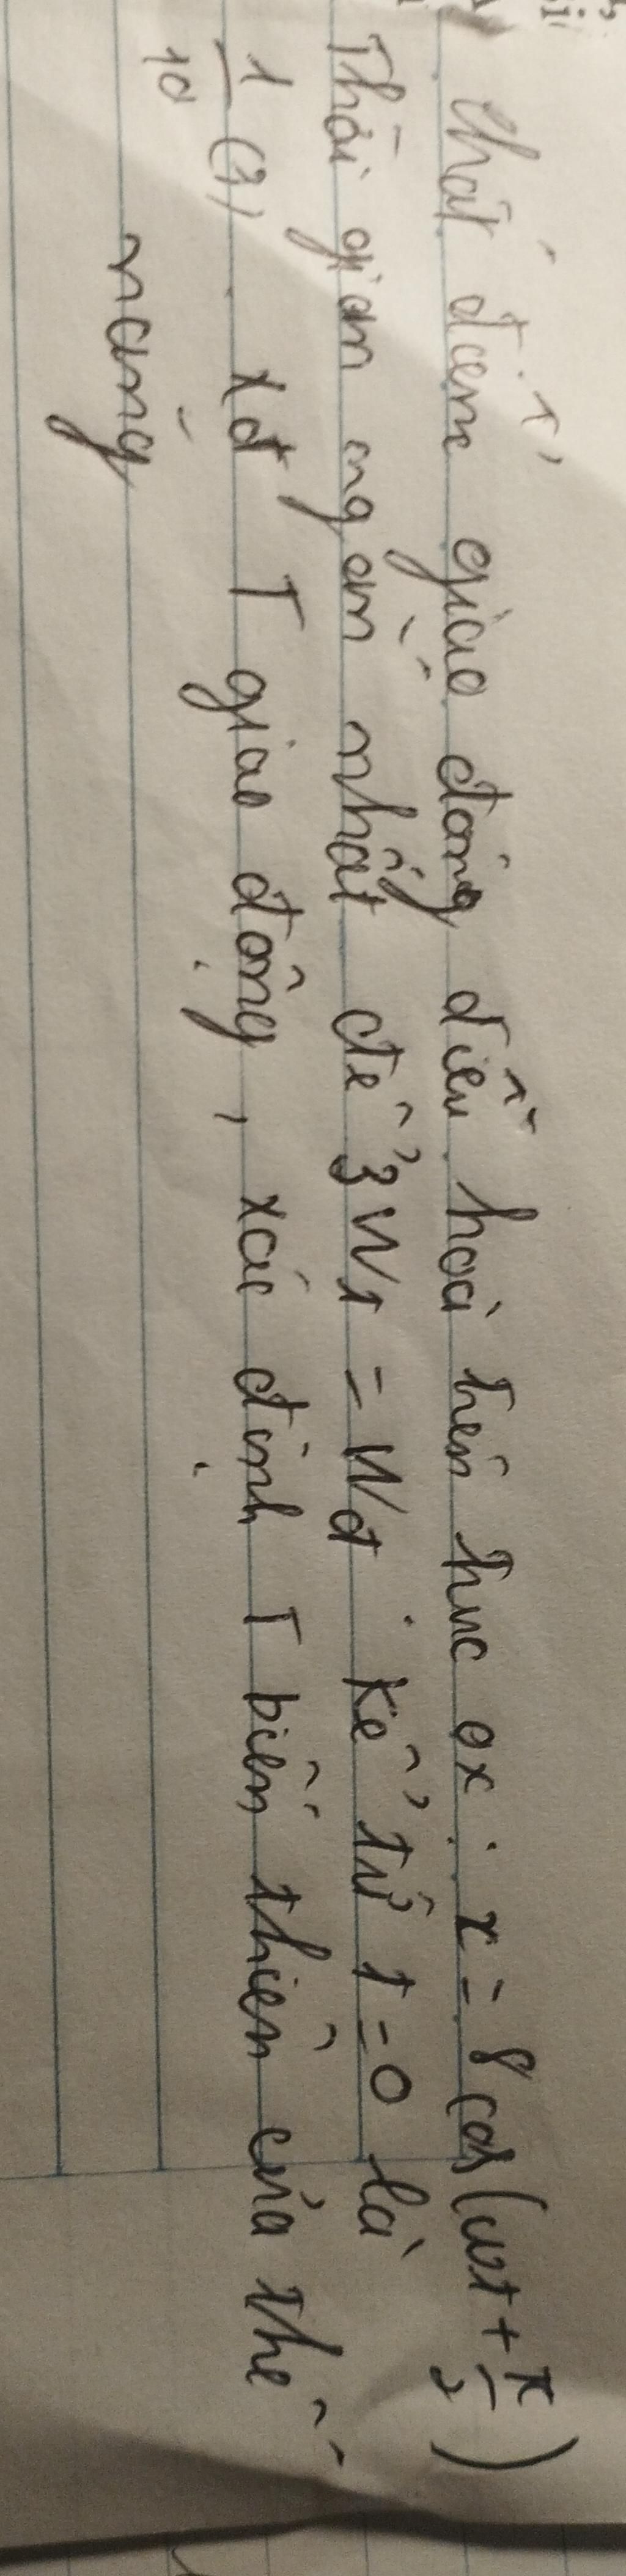 chất điểm giao động điều hoà trên trục ox : x = 8 cos(ωt + π/2)
Thời gian ngắn nhất để 3Wt = Wđ . Kể từ t = 0 là
1/10 (s) . xđ T giao động , xác định T biến thiên của thế
năng